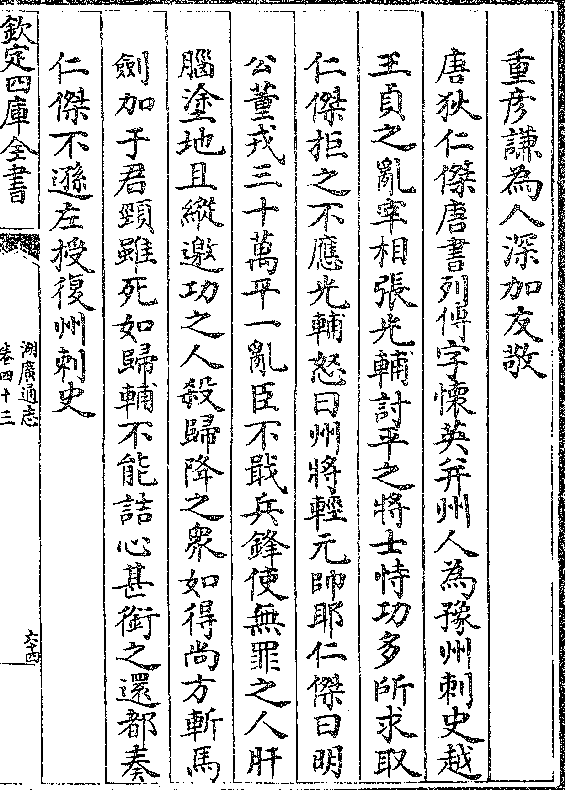 重彦謙為人深加友敬
唐狄仁傑唐書列傳字懷英并州人為豫州刺史越
王貞之亂宰相張光輔討平之將士恃功多所求取
仁傑拒之不應光輔怒曰州將輕元帥耶仁傑曰明
公董戎三十萬平一亂臣不戢兵鋒使無罪之人肝
腦塗地且縱邀功之人殺歸降之衆如得尚方斬馬
劍加于君頸雖死如歸輔不能詰心甚銜之還都奏
仁傑不遜左授復州刺史
欽定四庫全書
湖廣通志
卷四十三
六十四